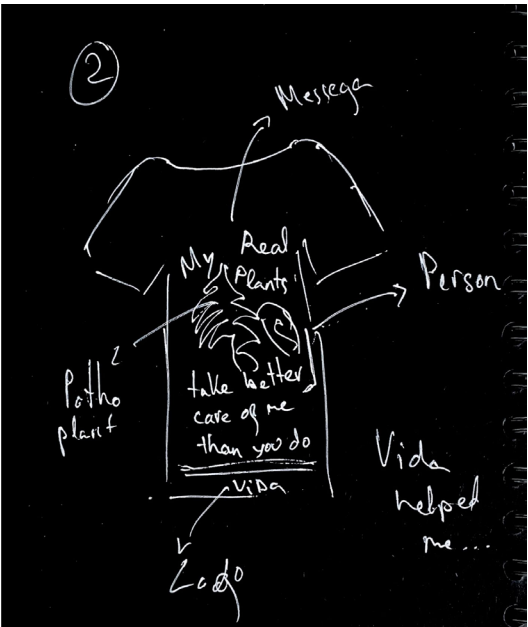 2
Messega
My Real
Plants
Person
Potho
plant
take better
care of me
than you do
ViDa
Logo
Vida
helped
me...